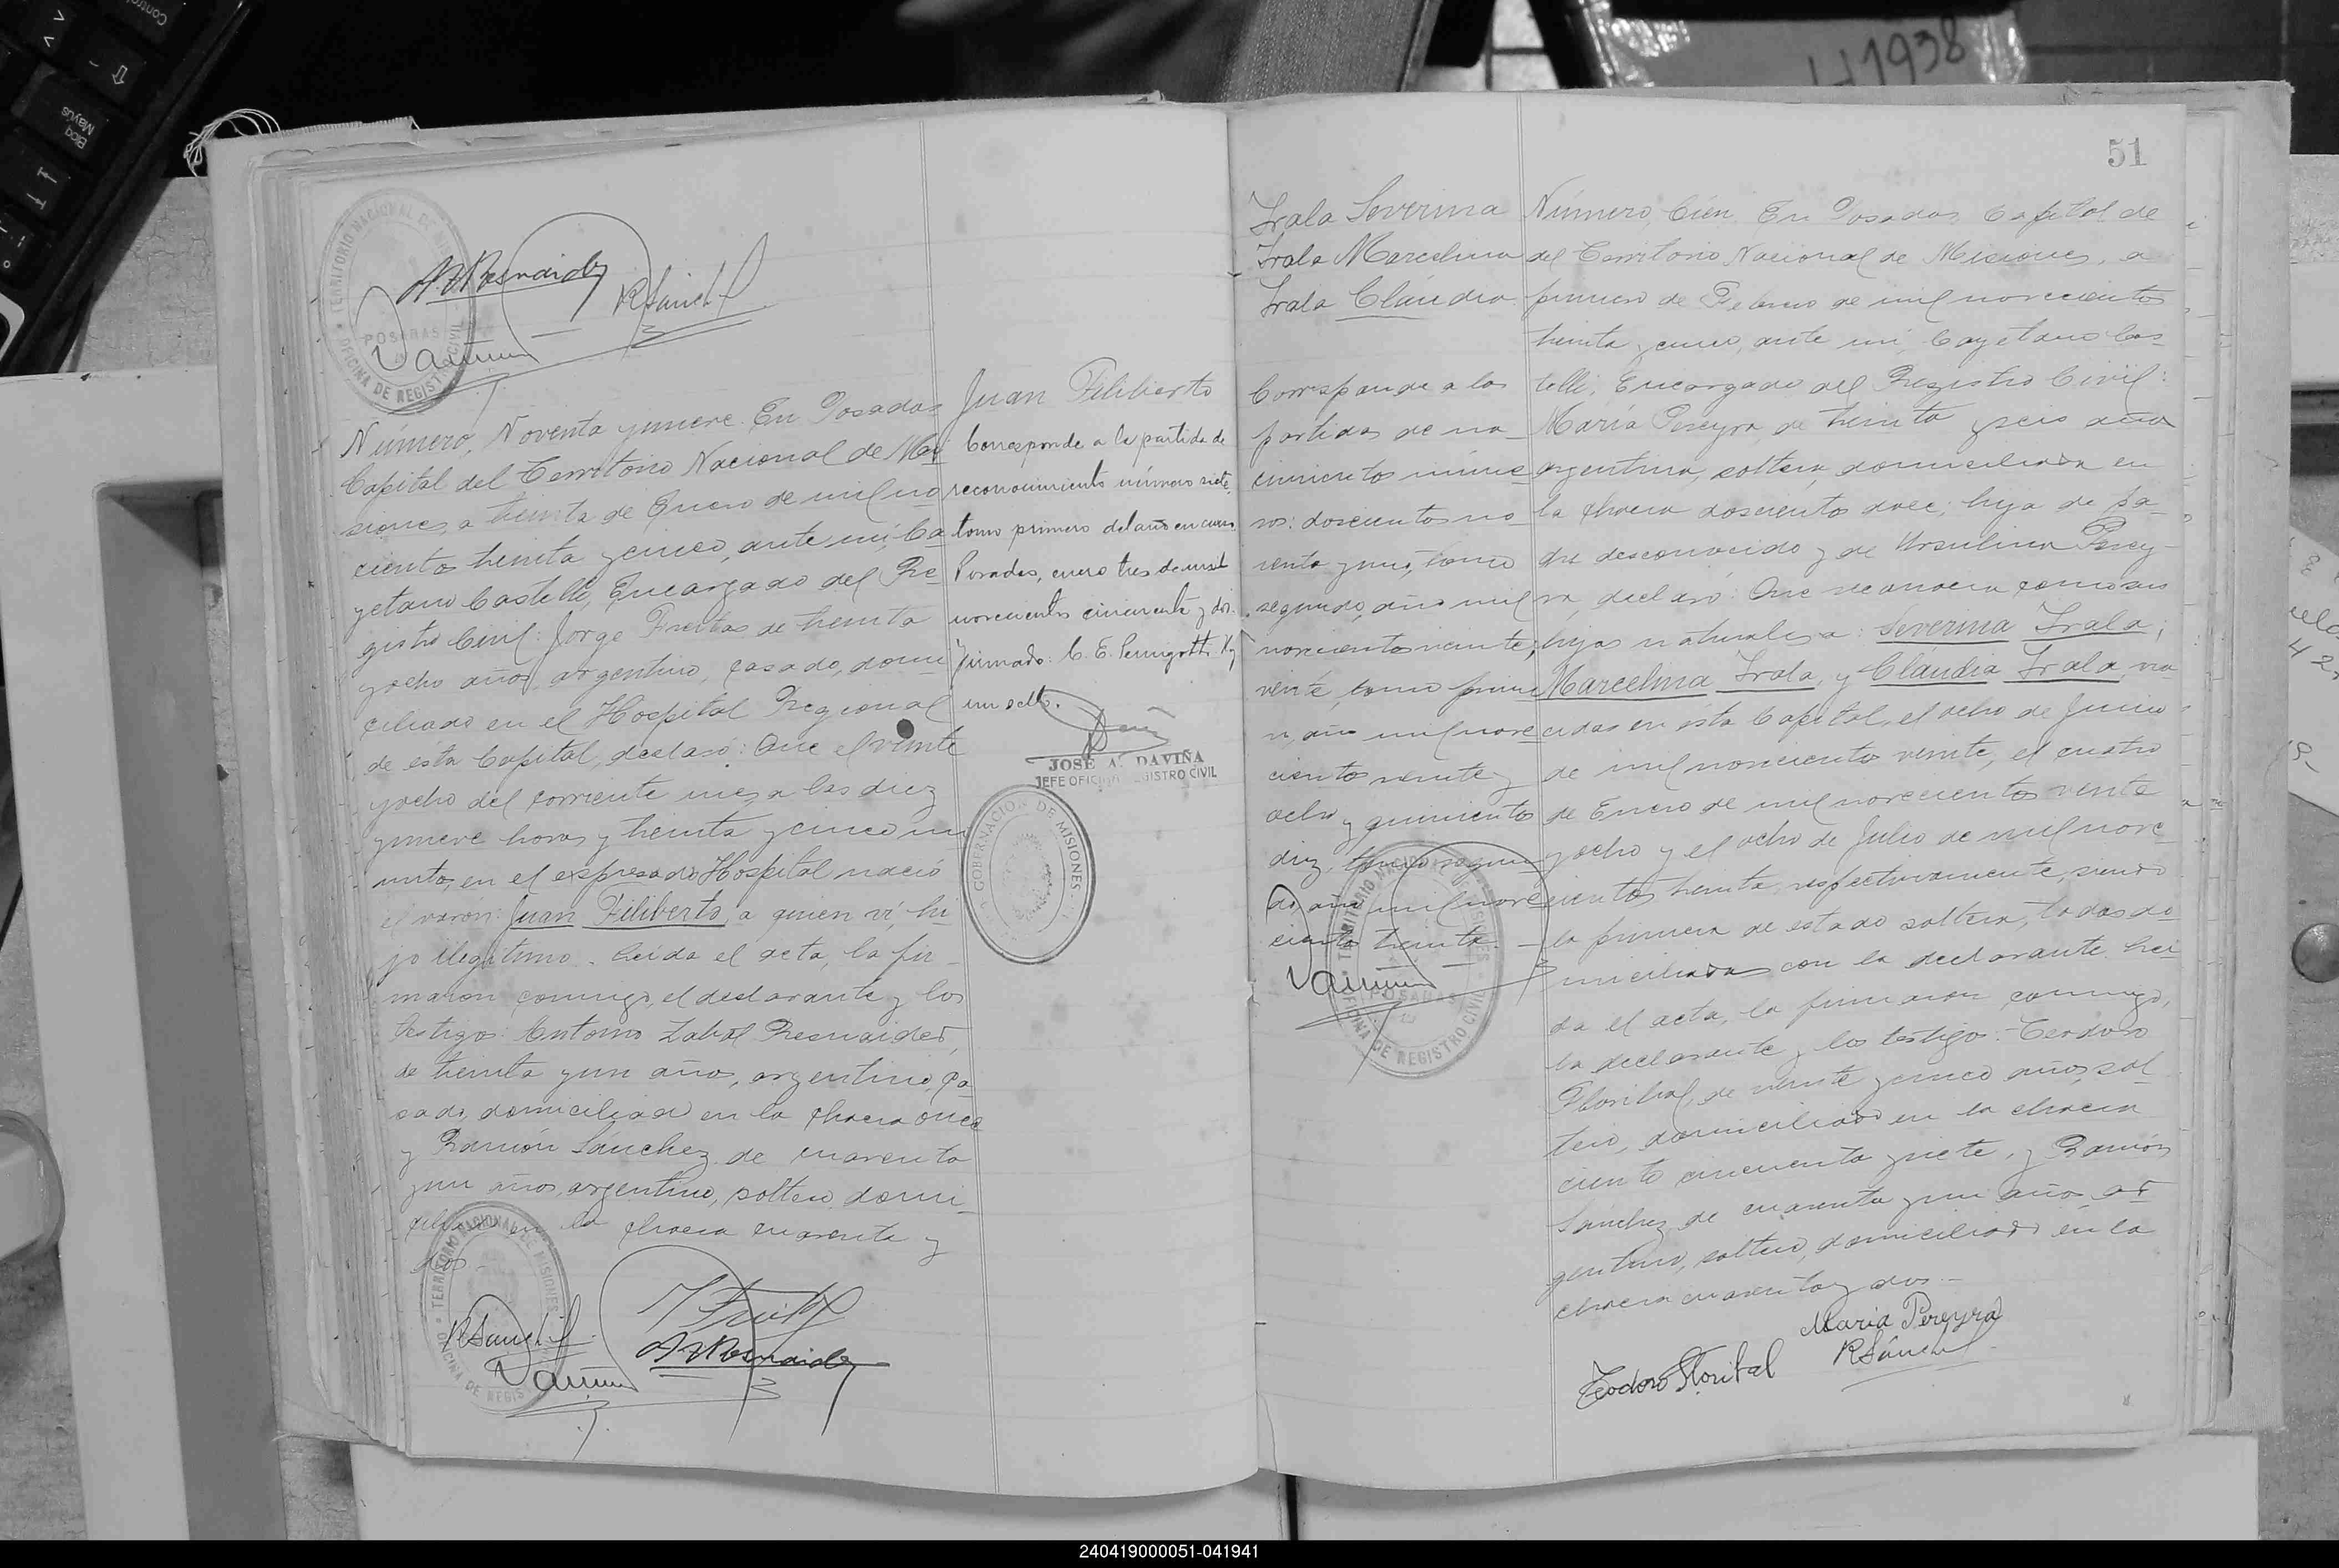 H1938
51
A Z Resnaider
R Sánchez
TERRITORIO NACIONAL DE MISIONES
POSADAS
OFICINA DE REGISTRO CIVIL
Número, Noventa y nueve. En Posadas
Capital del Territorio Nacional de Mi
siones, a treinta de Enero de mil no
cientos treinta y cinco, ante mí, Ca
yetano Castelli, Encargado del Re
gistro Civil: Jorge Freitas de treinta
y ocho años, argentino, casado, domi
ciliado en el Hospital Regional
de esta Capital, declaró: Que el veinte
y ocho del corriente mes, a las diez
y nueve horas y treinta y cinco mi
nutos, en el expresado Hospital nació
el varón: Juan Filiberto, a quien ví, hi
jo ilegítimo. Leida el acta, la fir_
maron conmigo, el declarante y los
testigos: Antonio Zabal Resnaider,
de treinta y un años, argentino, ca
sado, domiciliado en la chacra once
y Ramón Sánchez de cuarenta
y un años, argentino, soltero, domi_
ciliado en la chacra cuarenta y
dos_
TERRITORIO NACIONAL DE MISIONES
OFICINA DE REGISTRO CIVIL
R Sánchez
A Z Resnaider
Juan Filiberto
Corresponde a la partida de
reconocimiento número siete,
tomo primero del año en curso.
Posadas, enero tres de mil
novecientos cincuenta y dos.
firmado: C. E.
un sello.
JOSÉ A. DAVIÑA
JEFE OFICINA REGISTRO CIVIL
GOBERNACION DE MISIONES
Irala Severina
Irala Marcelina
Irala Claudia
Corresponde a las
partidas de na_
cimientos núme
ros: doscientos no_
venta y uno, tomo
segundo, año mil
novecientos veinte;
veinte, tomo prime
ro, año mil nove
cientos veinte y
ocho y quinientos
diez, tomo segun
do, año mil nove
cientos treinta. _
TERRITORIO NACIONAL DE MISIONES
POSADAS
OFICINA DE REGISTRO CIVIL
Número, Cien. En Posadas, Capital de
del Territorio Nacional de Misiones, a
primero de Febrero de mil novecientos
treinta y cinco, ante mí, Cayetano Cas_
telli, Encargado del Registro Civil:
María Pereyra, de treinta y seis años
argentina, soltera, domiciliada en
la chacra doscientos doce; hija de pa_
dre desconocido y de Ursulina Perey_
ra, declaró: Que reconocia como sus
hijas naturales a: Severina Irala;
Marcelina Irala, y Claudia Irala, na
cidas en esta Capital, el ocho de Junio
de mil novecientos veinte, el cuatro
de Enero de mil novecientos veinte
y ocho y el ocho de Julio de mil nove_
cientos treinta, respectivamente, siendo
la primera de estado soltera, todas do_
miciliadas con la declarante. Leí
da el acta, la firmaron conmigo,
la declarante y los testigos: Teodoro
Floribal, de veinte y cinco años, sol_
tero, domiciliado en la chacra
ciento cincuenta y siete, y Ramón
Sánchez, de cuarenta y un años, ar
gentino, soltero, domiciliado en la
chacra cuarenta y dos._
María Pereyra
R Sánchez
Teodoro Floribal
240419000051-041941